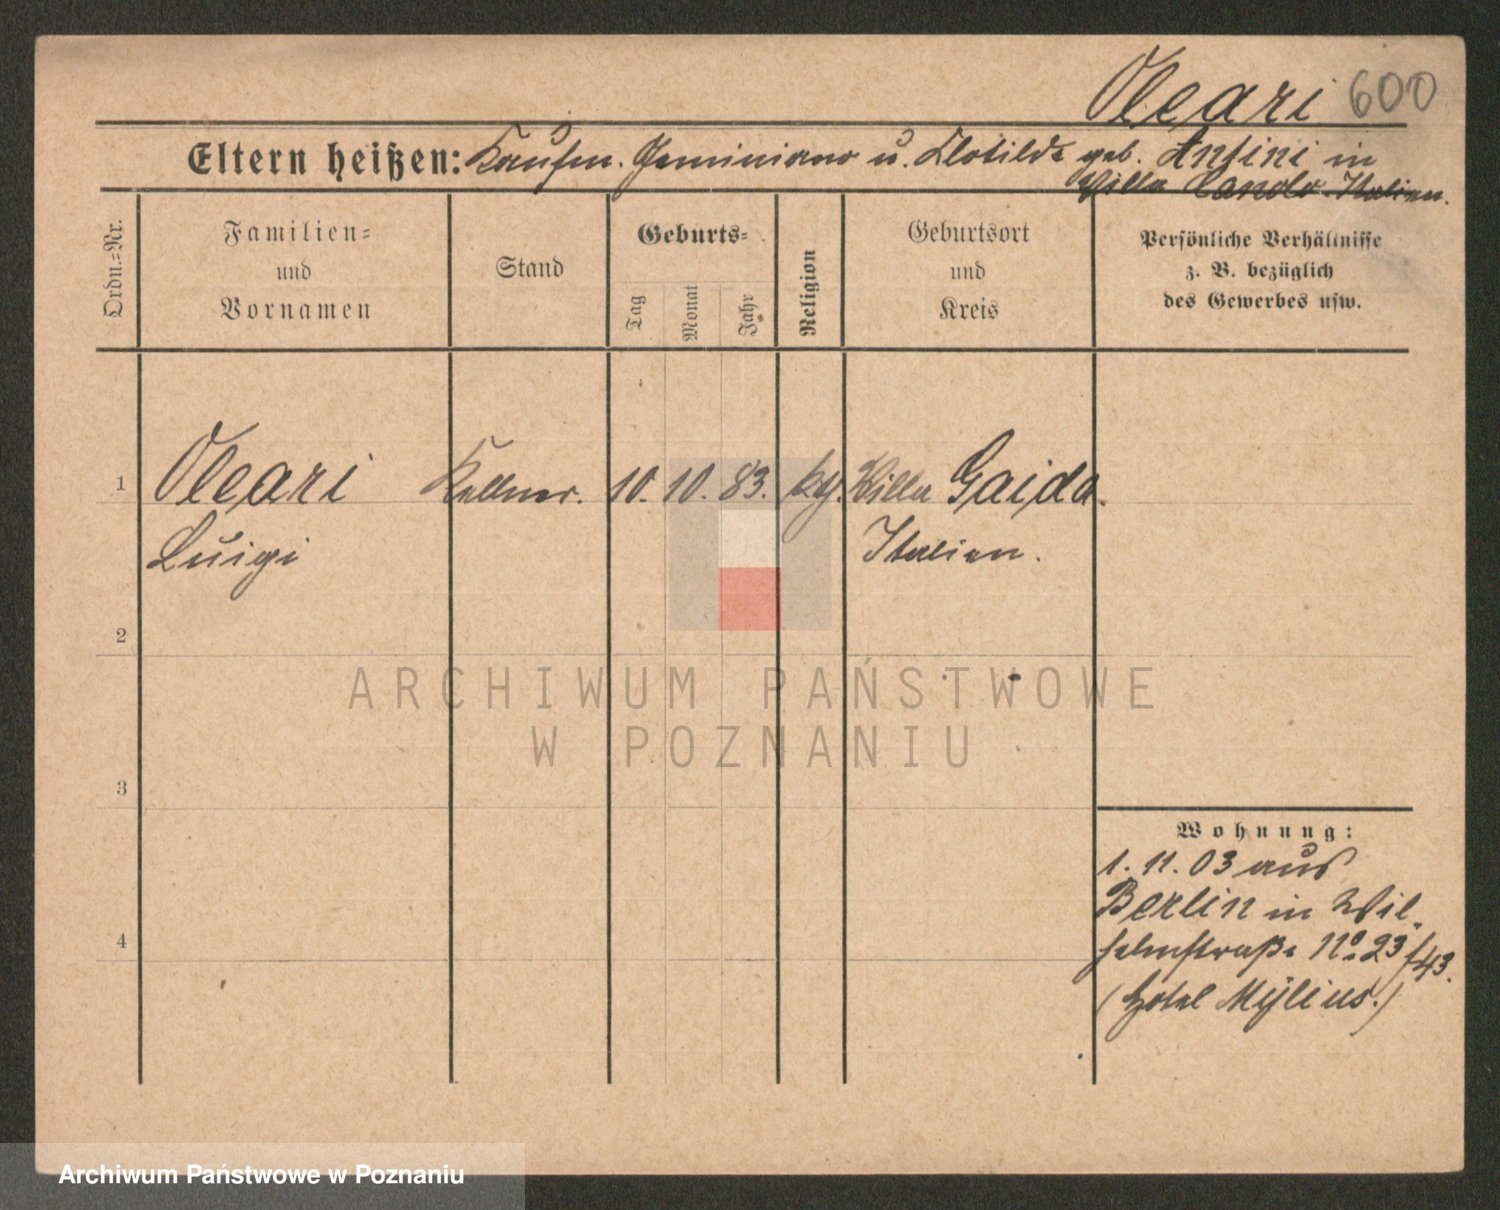 Oleari 600
Eltern heißen: Kaufm. Geminiano u. Klotilde geb. Antini in
Villa Canolo Italien.
Ordn.-Nr.
Familien-
und
Vornamen
Stand
Geburts-
Tag
Monat
Jahr
Religion
Geburtsort
und
Kreis
Persönliche Verhältnisse
z. B. bezüglich
des Gewerbes usw.
1 Oleari Kellner. 10. 10. 83. kth. Villa Gaida.
Luigi Italien.
2
3
4
Wohnung:
1. 11. 03 aus
Berlin in Wil-
helmstraße No. 23 f 43.
(Hotel Mÿlius.)
ARCHIWUM PAŃSTWOWE
W POZNANIU
Archiwum Państwowe w Poznaniu